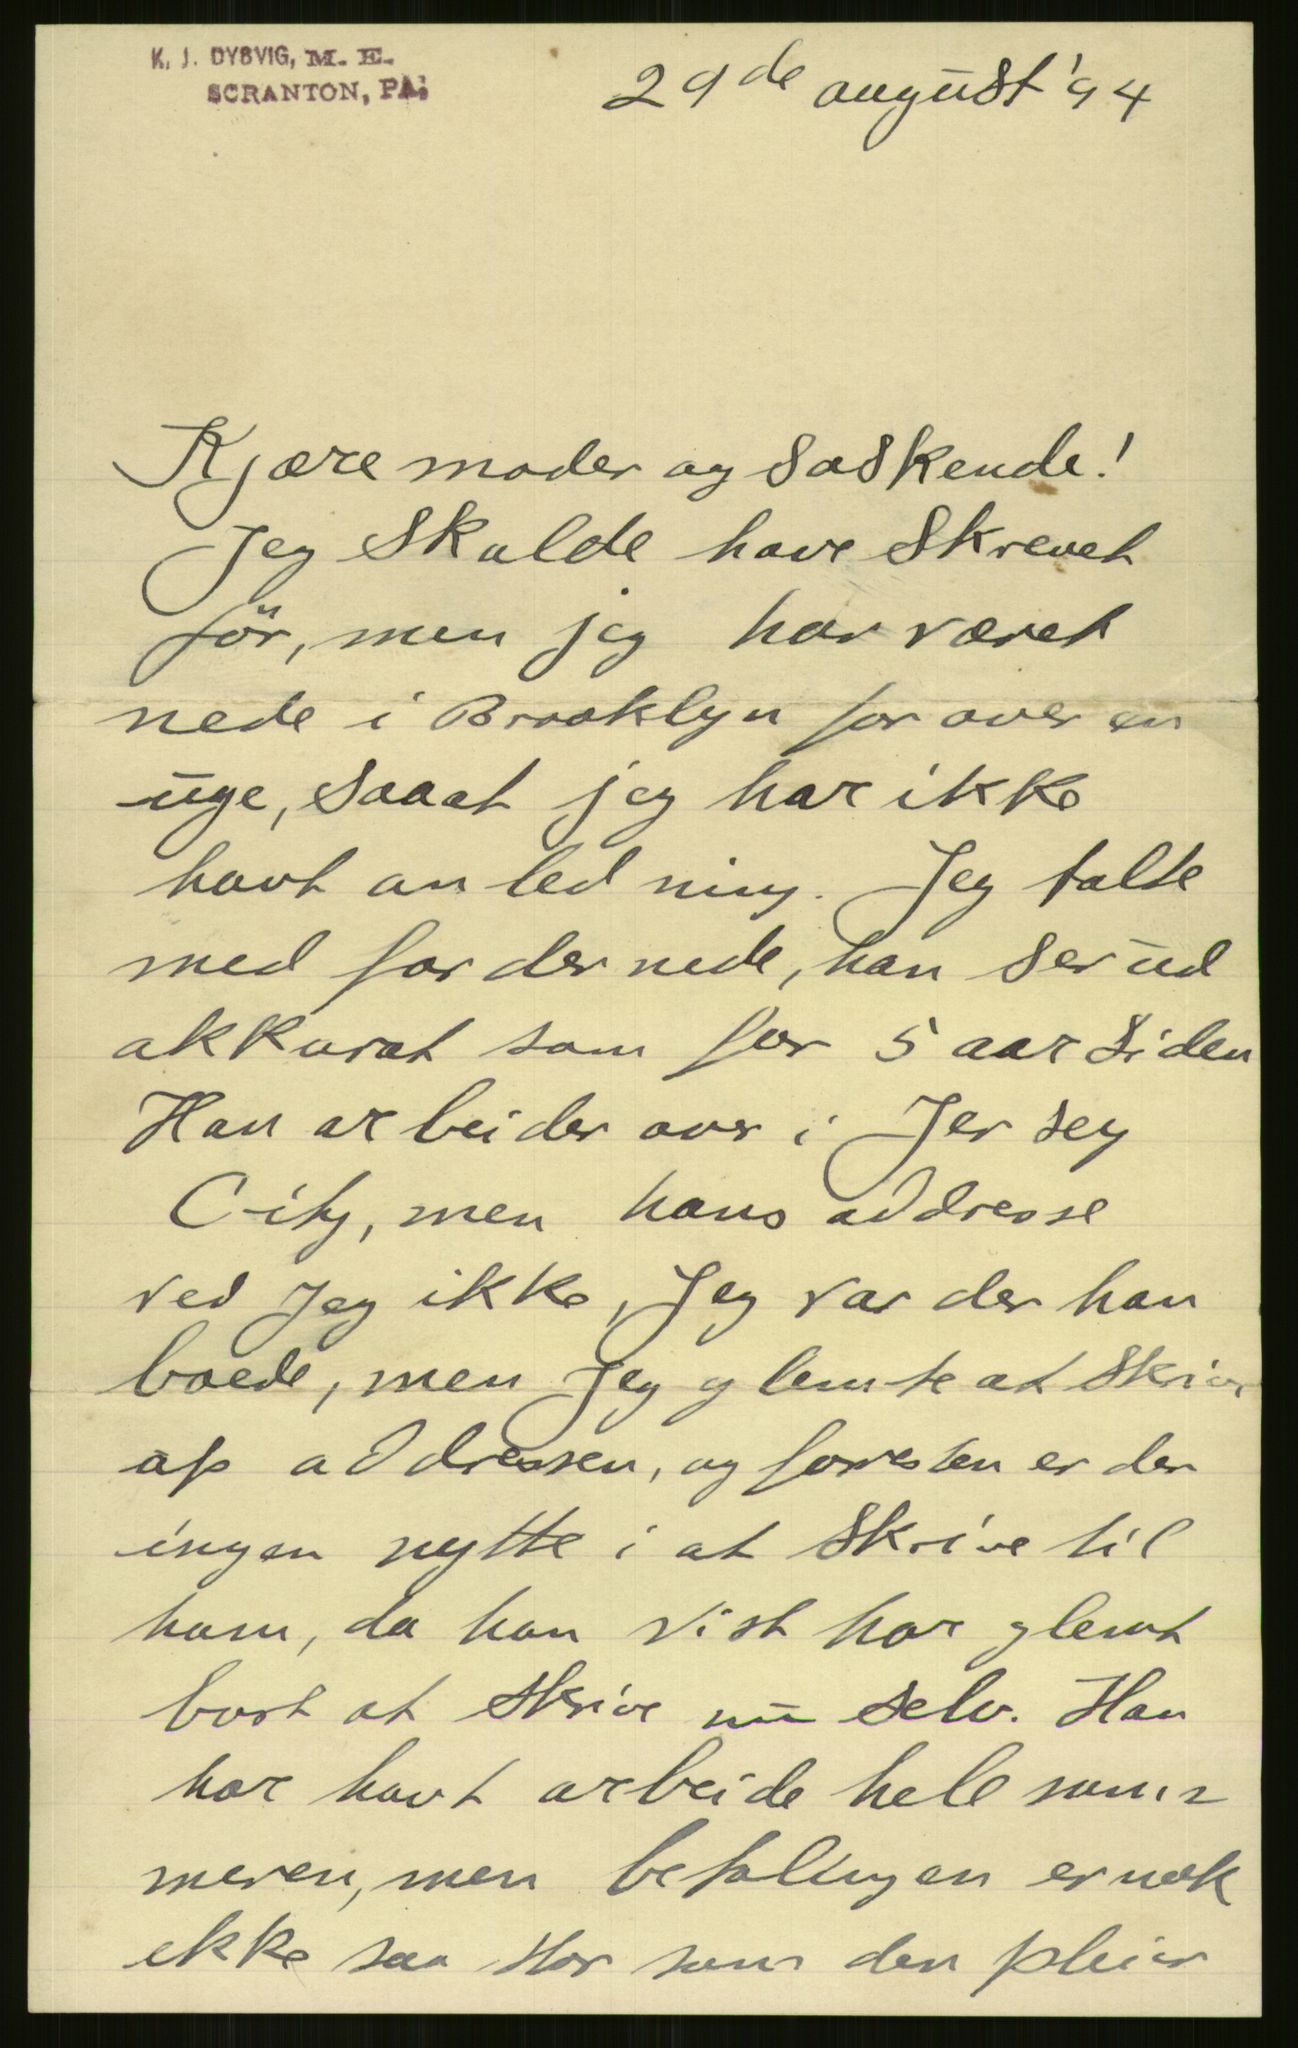 K. J. DYSVIG, M. E.
SCRANTON, PA.
29de august '94
Kjære moder og søskende!
Jeg skulde have skrevet
før, men jeg har været
nede i Brooklyn for over en
uge, saaat jeg har ikke
havt anledning. Jeg talte
med far der nede, han ser ud
akkurat som for 5 aar siden
Han arbeider over i Jersey
City, men hans addresse
ved Jeg ikke, Jeg var der han
boede, men Jeg glemte at skrive
op addressen, og forresten er der
ingen nytte i at skrive til
ham, da han vist har glemt
bort at skrive nu selv. Han
har havt arbeide hele som=
meren, men betalingen er nok
ikke saa stor som den pleier